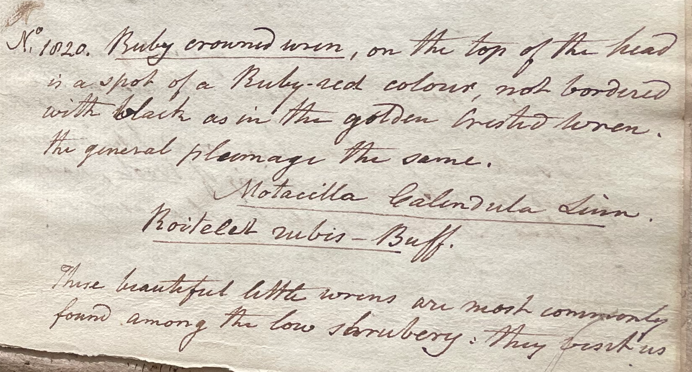 No. 1820. Ruby crowned wren, on the top of the head
is a spot of a Ruby-red colour, not bordered
with black as in the golden Crested Wren.
the general plumage the same.
Motacilla Calendula Linn.
Roitelet rubis - Buff.
These beautiful little wrens are most commonly
found among the low shrubery: they visit us